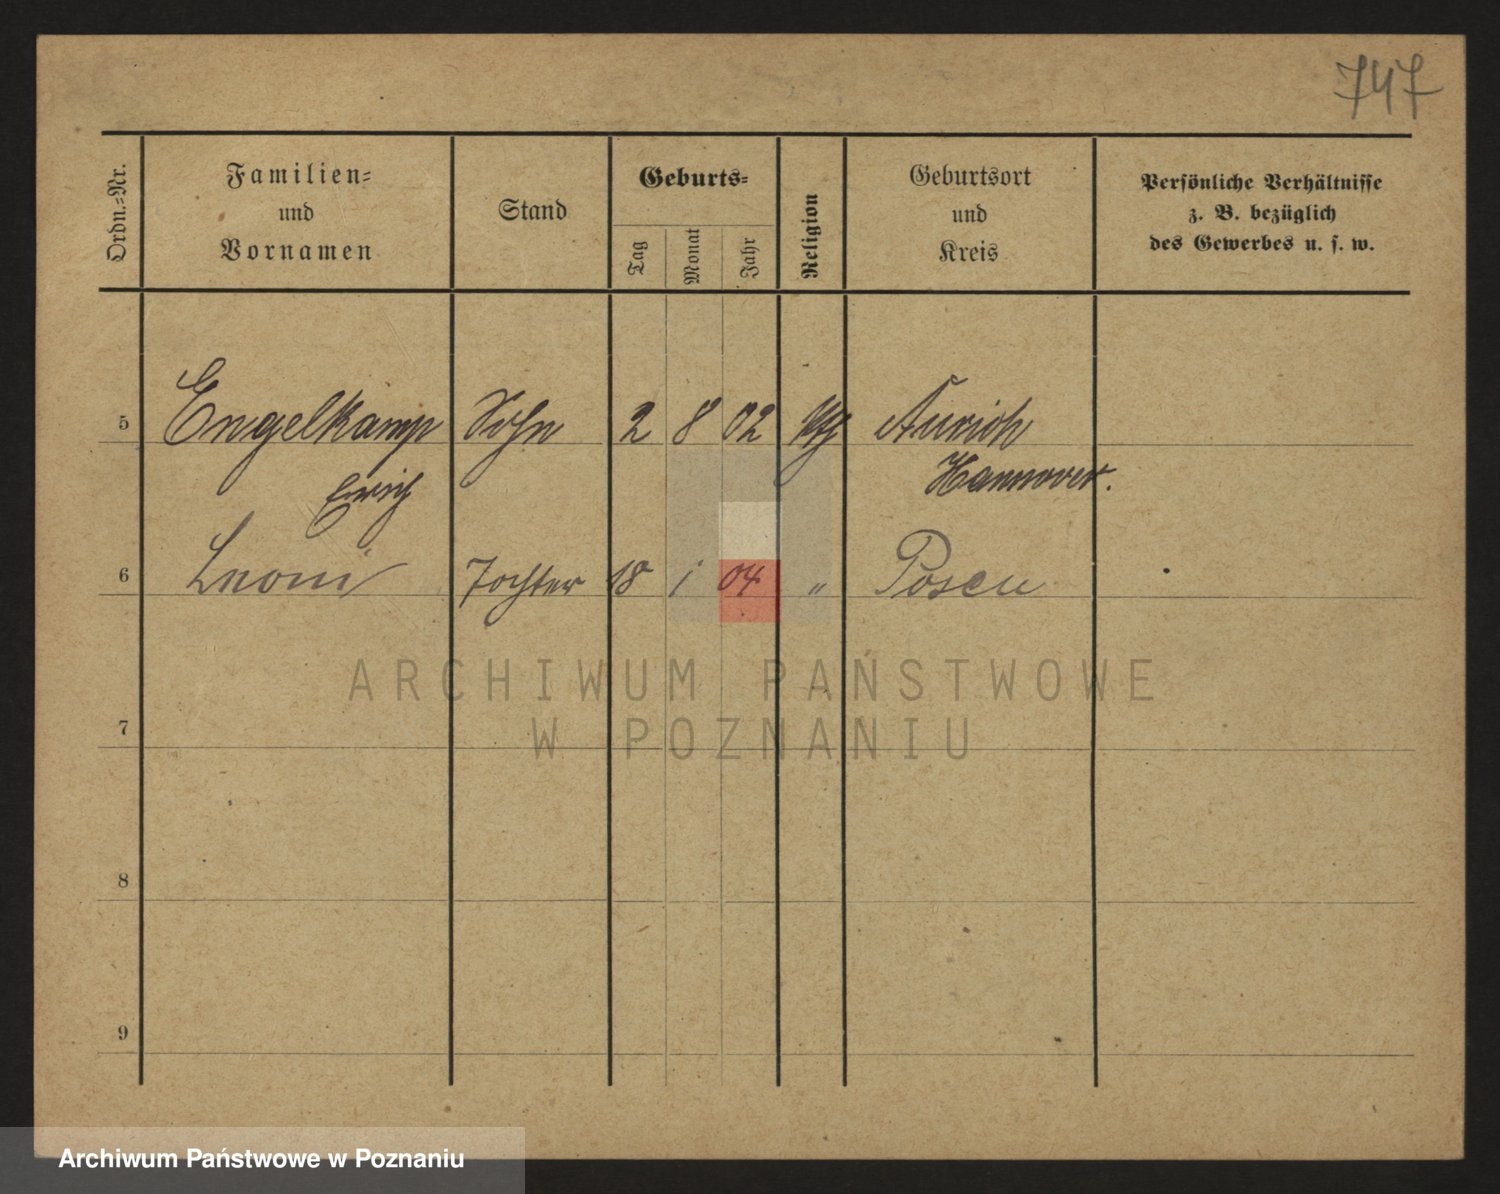 747
Ordn.=Nr.
Familien=
und
Vornamen
Stand
Geburts=
Tag
Monat
Jahr
Religion
Geburtsort
und
Kreis
Persönliche Verhältnisse
z. B. bezüglich
des Gewerbes u. s. w.
5 Engelkamp Sohn 2 8 02 Aurich
Erich Hannover.
6 Leoni Tochter 18 1 04 " Posen
ARCHIWUM PAŃSTWOWE
W POZNANIU
7
8
9
Archiwum Państwowe w Poznaniu